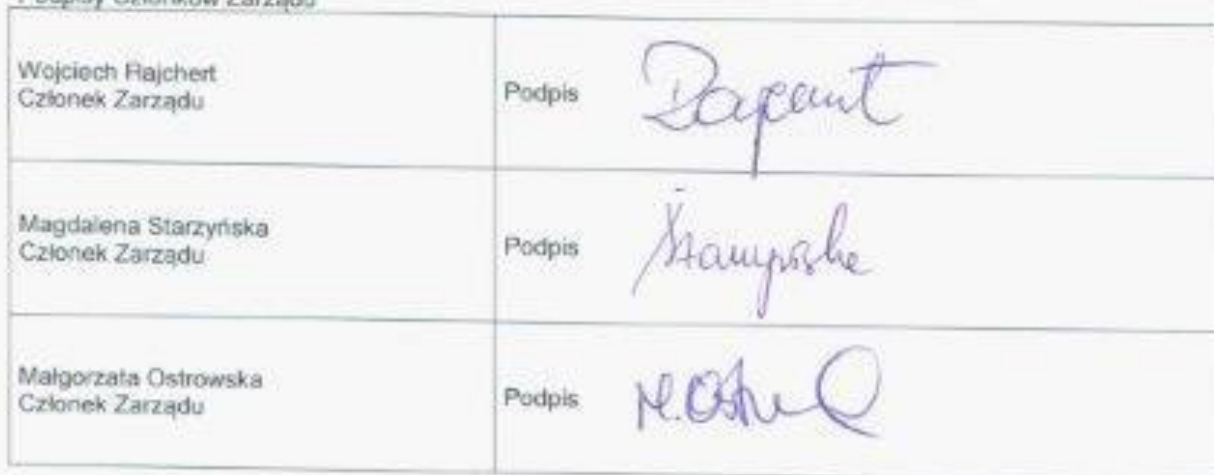 Podpisy Członków Zarządu
Wojciech Rajchert
Członek Zarządu
Podpis
Magdalena Starzyńska
Członek Zarządu
Podpis
Małgorzata Ostrowska
Członek Zarządu
Podpis